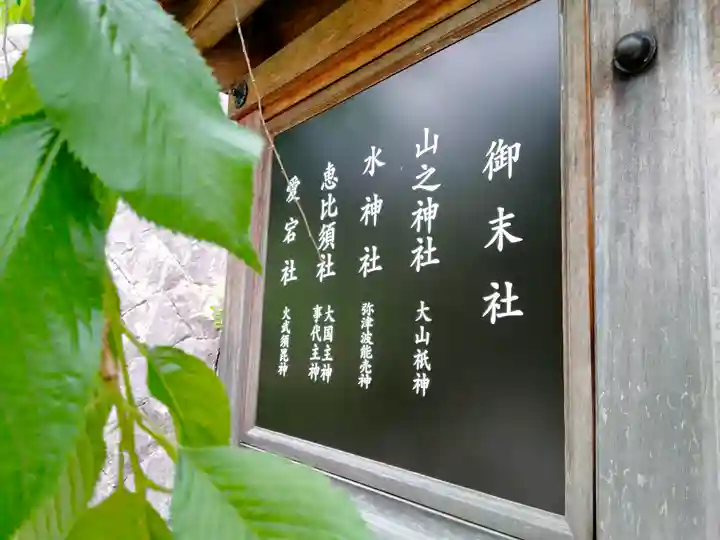 御末社
山之神社 大山祇神
水神社 弥津波能売神
恵比須社 大国主神
事代主神
愛宕社 火武須毘神